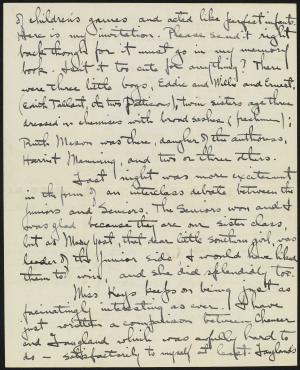 of children's games and acted like perfect infants.
Here is my invitation. Please send it right
back though for it must go in my memory
book. Isn't it too cute for anything? There
were three little boys, Eddie and Willie and Ernest,
Edith Tallant, the two Pattison twin sisters aged three
dressed in chemises with broad sashes (freshmen);
Ruth Mason was there, daughter of the authoress,
Harriet Manning, and two or three others.
Last night was more excitement
in the form of an interclass debate between the
Juniors and Seniors. The Seniors won and I
was glad because they are our sister class,
but as Mary Yost, that dear little southern girl, was
leader of the Junior side I would have liked
them to win, and she did splendidly too.
Miss Keys keeps on being just as
fascinatingly interesting as ever. I have
just written a comparison between Chaucer
and Langland which was awfully hard to
do - satisfactorily to myself at least. Langland's